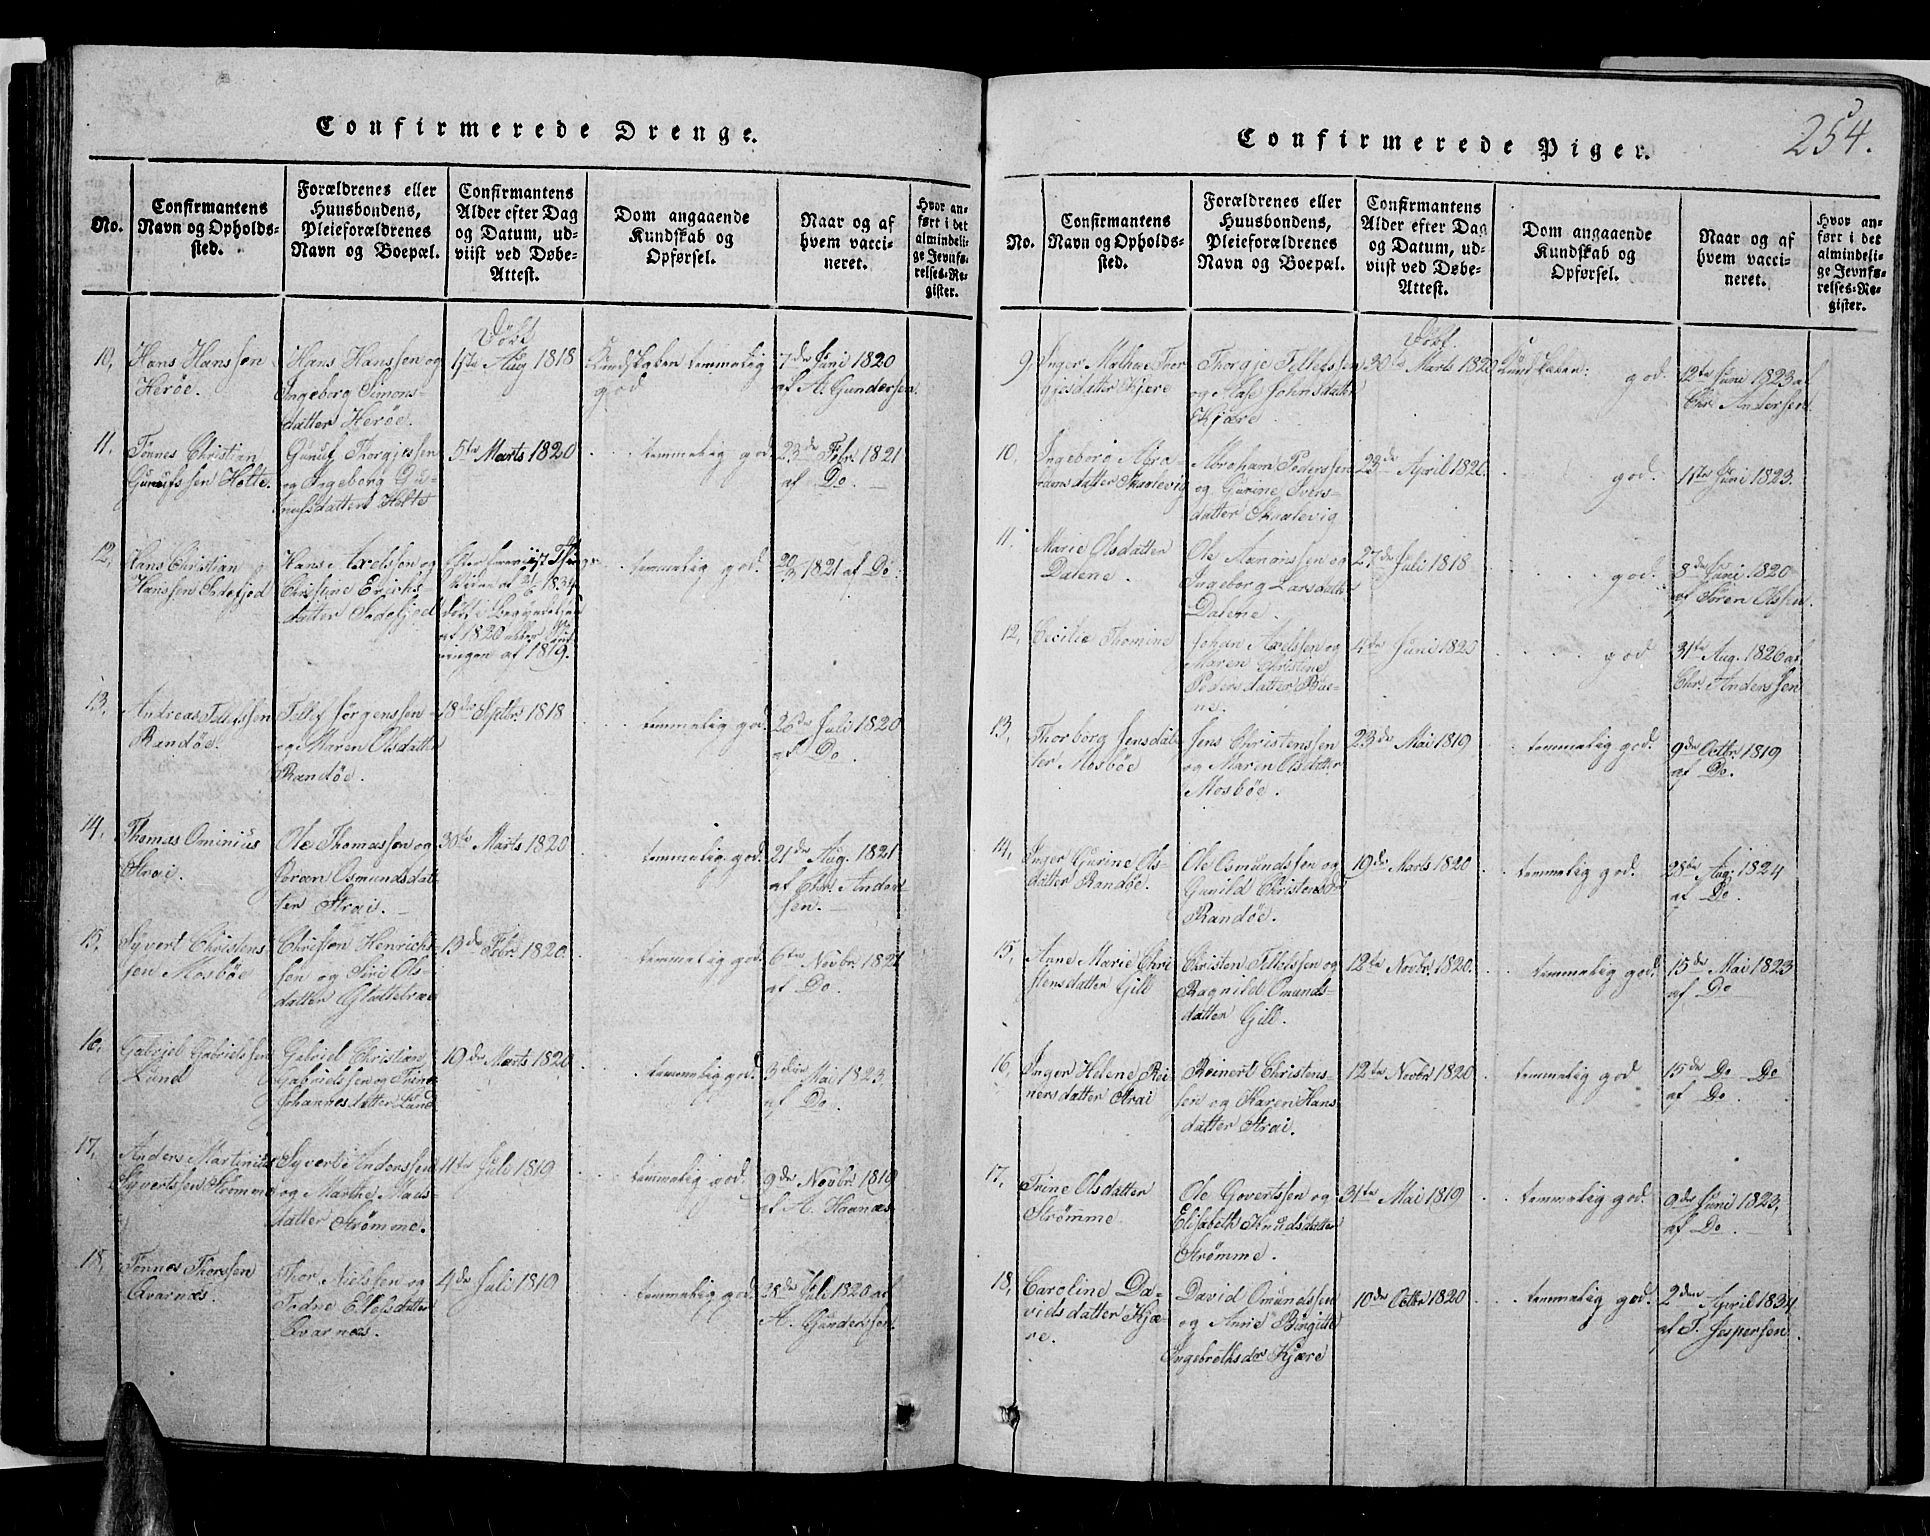 Confirmerede Drenge.
No.
Confirmantens
Navn og Opholds-
sted.
Forældrenes eller
Huusbondens,
Pleieforældrenes
Navn og Boepæl.
Confirmantens
Alder efter Dag
og Datum, ud-
viist ved Døbe-
Attest.
Dom angaaende
Kundskab og
Opførsel.
Naar og af
hvem vacci-
neret.
Hvor an-
ført i det
almindeli-
ge Jevnfø-
relses-Re-
gister.
10,
Hans Hanssen
Herøe.
Hans Hanssen og
Ingeborg Simons-
datter Herøe.
Døbt
Aug 1818
Kundskaben temmelig
god
7de Juni 1820
af A. Gundersen.
11.
Tønnes Christian
Gunufssen Holte.
Gunuf Thorgjessen
og Ingeborg Gu-
nufsdatter Holte
5te Marts 1820
temmelig god
23de Febr. 1821
af Do. —
12,
Hans Christian
Hanssen Indefjod
Hans Axelssen og
Christine Erichs-
datter Indefjod
af 1834
døbt i Begyndelsen
af 1820 eller
ningen af 1819.
temmelig god.
1821 af Do.
13.
Andreas Tellefssen
Randøe.
Tellef Jørgenssen
og Maren Olsdatter
Randøe.
18de Septbr. 1818
temmelig god.
26de Juli 1820
af Do.
14.
Thomas Ominius
Strai.
Ole Thomassen og
Osmundsdat-
ter Strai. —
30te Marts 1820
temmelig god.
21de Aug. 1821
af Chr. Anders-
sen. —
15,
Syvert Christens-
sen Mosbøe
Christen Henrichs-
sen og Siri Ols-
datter
13de Febr. 1820.
temmelig god
6te Novbr. 1821
af Do.
16.
Gabriel Gabrielssen
Lund
Gabriel Christian
Gabrielssen og Trine
Johannesdatter Lund
19de Marts 1820
temmelig god.
3die Mai 1823.
af Do.
17.
Anders Martinius
Syvertssen Strømme
Syvert Anderssen
og Marthe Mads-
datter Strømme.
4te Juli 1819
temmelig god.
9de Novbr. 1819
af A. Haanæs.
18,
Tønnes Thorssen
Qvarnæs.
Thor Nielssen og
Qvarnæs.
4de Juli 1819
temmelig god.
28de Juli 1820 af
A. Gunderssen.
Confirmerede Piger.
254.
No.
Confirmantens
Navn og Opholds-
sted.
Forældrenes eller
Huusbondens,
Pleieforældrenes
Navn og Boepæl.
Confirmantens
Alder efter Dag
og Datum, ud-
viist ved Døbe-
Attest.
Dom angaaende
Kundskab og
Opførsel.
Naar og af
hvem vacci-
neret.
Hvor an-
ført i det
almindeli-
ge Jevnfø-
relses-Re-
gister.
9,
Inger Mathea Thor-
gjesdatter Kjære
Thorgje Tellefssen
og Aase Johnsdatter
Kjære
Døbt.
30te Marts 1820
Kundskaben: god.
12te Juni 1823 af
Chr. Anderssen
10,
Ingeborg Abra-
hamsdatter Skaalevig
Abraham Pederssen
og Gurine Ivers-
datter Skaalevig
23de April 1820.
god.
11te Juni 1823.
11.
Marie Olsdatter
Dalene.
Ole Aanonssen og
Ingeborg Larsdatter
Dalene
27de Juli 1818
god.
8de Juni 1820
af Søren Olssen.
12,
Cecilie Thomine
Johan Axelssen og
Maren Christine
Pedersdatter Bue-
ne.
4de Juni 1820
god
31te Aug. 1826 af
Chr. Anderssen
13,
Thorborg Jensdat-
ter Mosbøe
Jens Christenssen
og Maren Olsdatter
Mosbøe.
23de Mai 1819
temmelig god.
9de Octbr. 1819
af Do.
14,
Inger Gurine Ols-
datter Randøe.
Ole Osmundssen og
Gunild Christensdr
Randøe.
19de Marts 1820
temmelig god.
28de Aug. 1824
af Do.
15,
Anne Marie Chri-
stensdatter Gill
Christen Tellefssen og
Ragnild Omunds-
datter Gill.
12te Novbr. 1820.
temmelig god.
15de Mai 1823
af Do
16,
Inger Helene Rei-
nersdatter Strai
Reinert Christens-
sen og Karen Hans-
datter Strai.
12te Novbr. 1820
temmelig god
15de Do Do
af Do.
17,
Trine Olsdatter
Strømme
Ole Govertssen og
Elisabeth Knudsdatter
Strømme.
31te Mai 1819
temmelig god.
9de Juni 1823,
af Do.
18,
Caroline Da-
vidsdatter Kjæ-
re.
David Omundssen
og Anne Birgitte
Ingebrethsdr Kjære
10de Octbr 1820
temmelig god.
2den April 1834
af T. Jespersen.